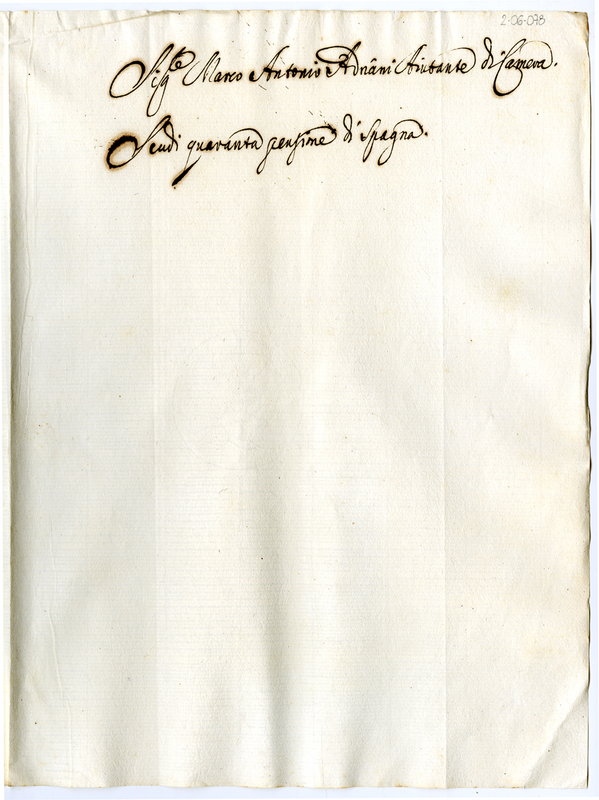 2-06-078
Sig.re Marco Antonio Adriani Aiutante di Camera.
Scudi quaranta pensione di Spagna.